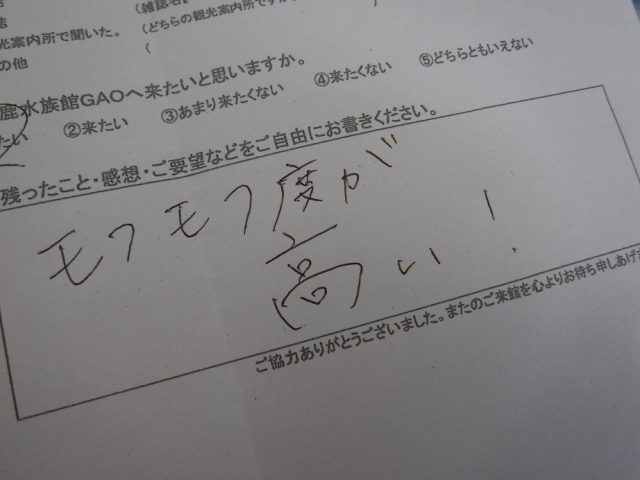 誌
(雑誌名
光案内所で聞いた。 (どちらの観光案内所ですか
の他 (
鹿水族館GAOへ来たいと思いますか。
たい ②来たい ③あまり来たくない ④来たくない ⑤どちらともいえない
残ったこと・感想・ご要望などをご自由にお書きください。
モフモフ度が
高い!
ご協力ありがとうございました。またのご来館を心よりお待ち申しあげ